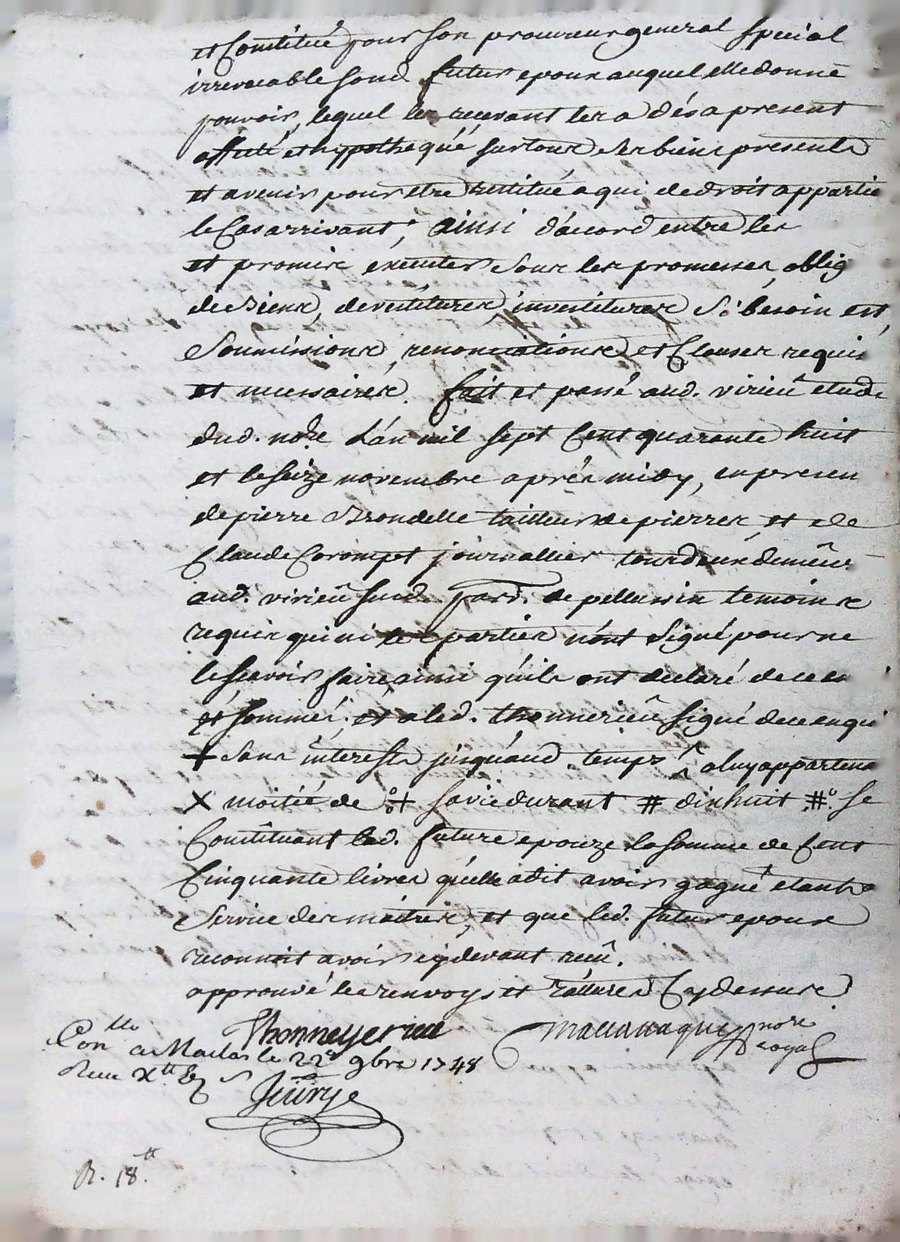 et Constitué pour son procureur general special
irrevocable sond. futur epoux auquel elle donne
pouvoir, lequel les recevant les a dés a present
affecté et hypothequé sur tous ses biens presents
et avenir pour etre restitué a qui de droit appartie
le Cas arrivant, ainsi d'accord entre les
et promis executer sous les promesses, oblig
de biens, devetitures, investitures si besoin est,
Soumissions, renonciations et Clauses requis
et necessaires. fait et passé aud. virieû etude
dud. nore L'an mil sept Cent quarante huit
et le seize novembre aprés midy, en presen
de pierre Brondelle tailleur de pierres et de
Claude Corompt journallier tous deux demeur
aud. virieû sud. parr. de pellussin temoins
requis qui ni les parties n'ont signé pour ne
le scavoir faire ainsi qu'ils ont declaré de ce en
et sommés, et a led. thonnerieû signé de ce enqui
+ sans interests jusqu'aud. temps ^ a luy appartena
X moitié de + sa vie durant # dixhuit # se
Constituant lad. future epouze la somme de Cent
Cinquante livres qu'elle a dit avoir gagné etant a
Service des maitres, et que led. futur epoux
reconnoit avoir cy devant reçû.
approuvé les renvoys et ratures Cy dessus
Thonneyerieu nore royal
Con lle a Maclas le 22e 9bre 1748
Reçu
R. 18 tt